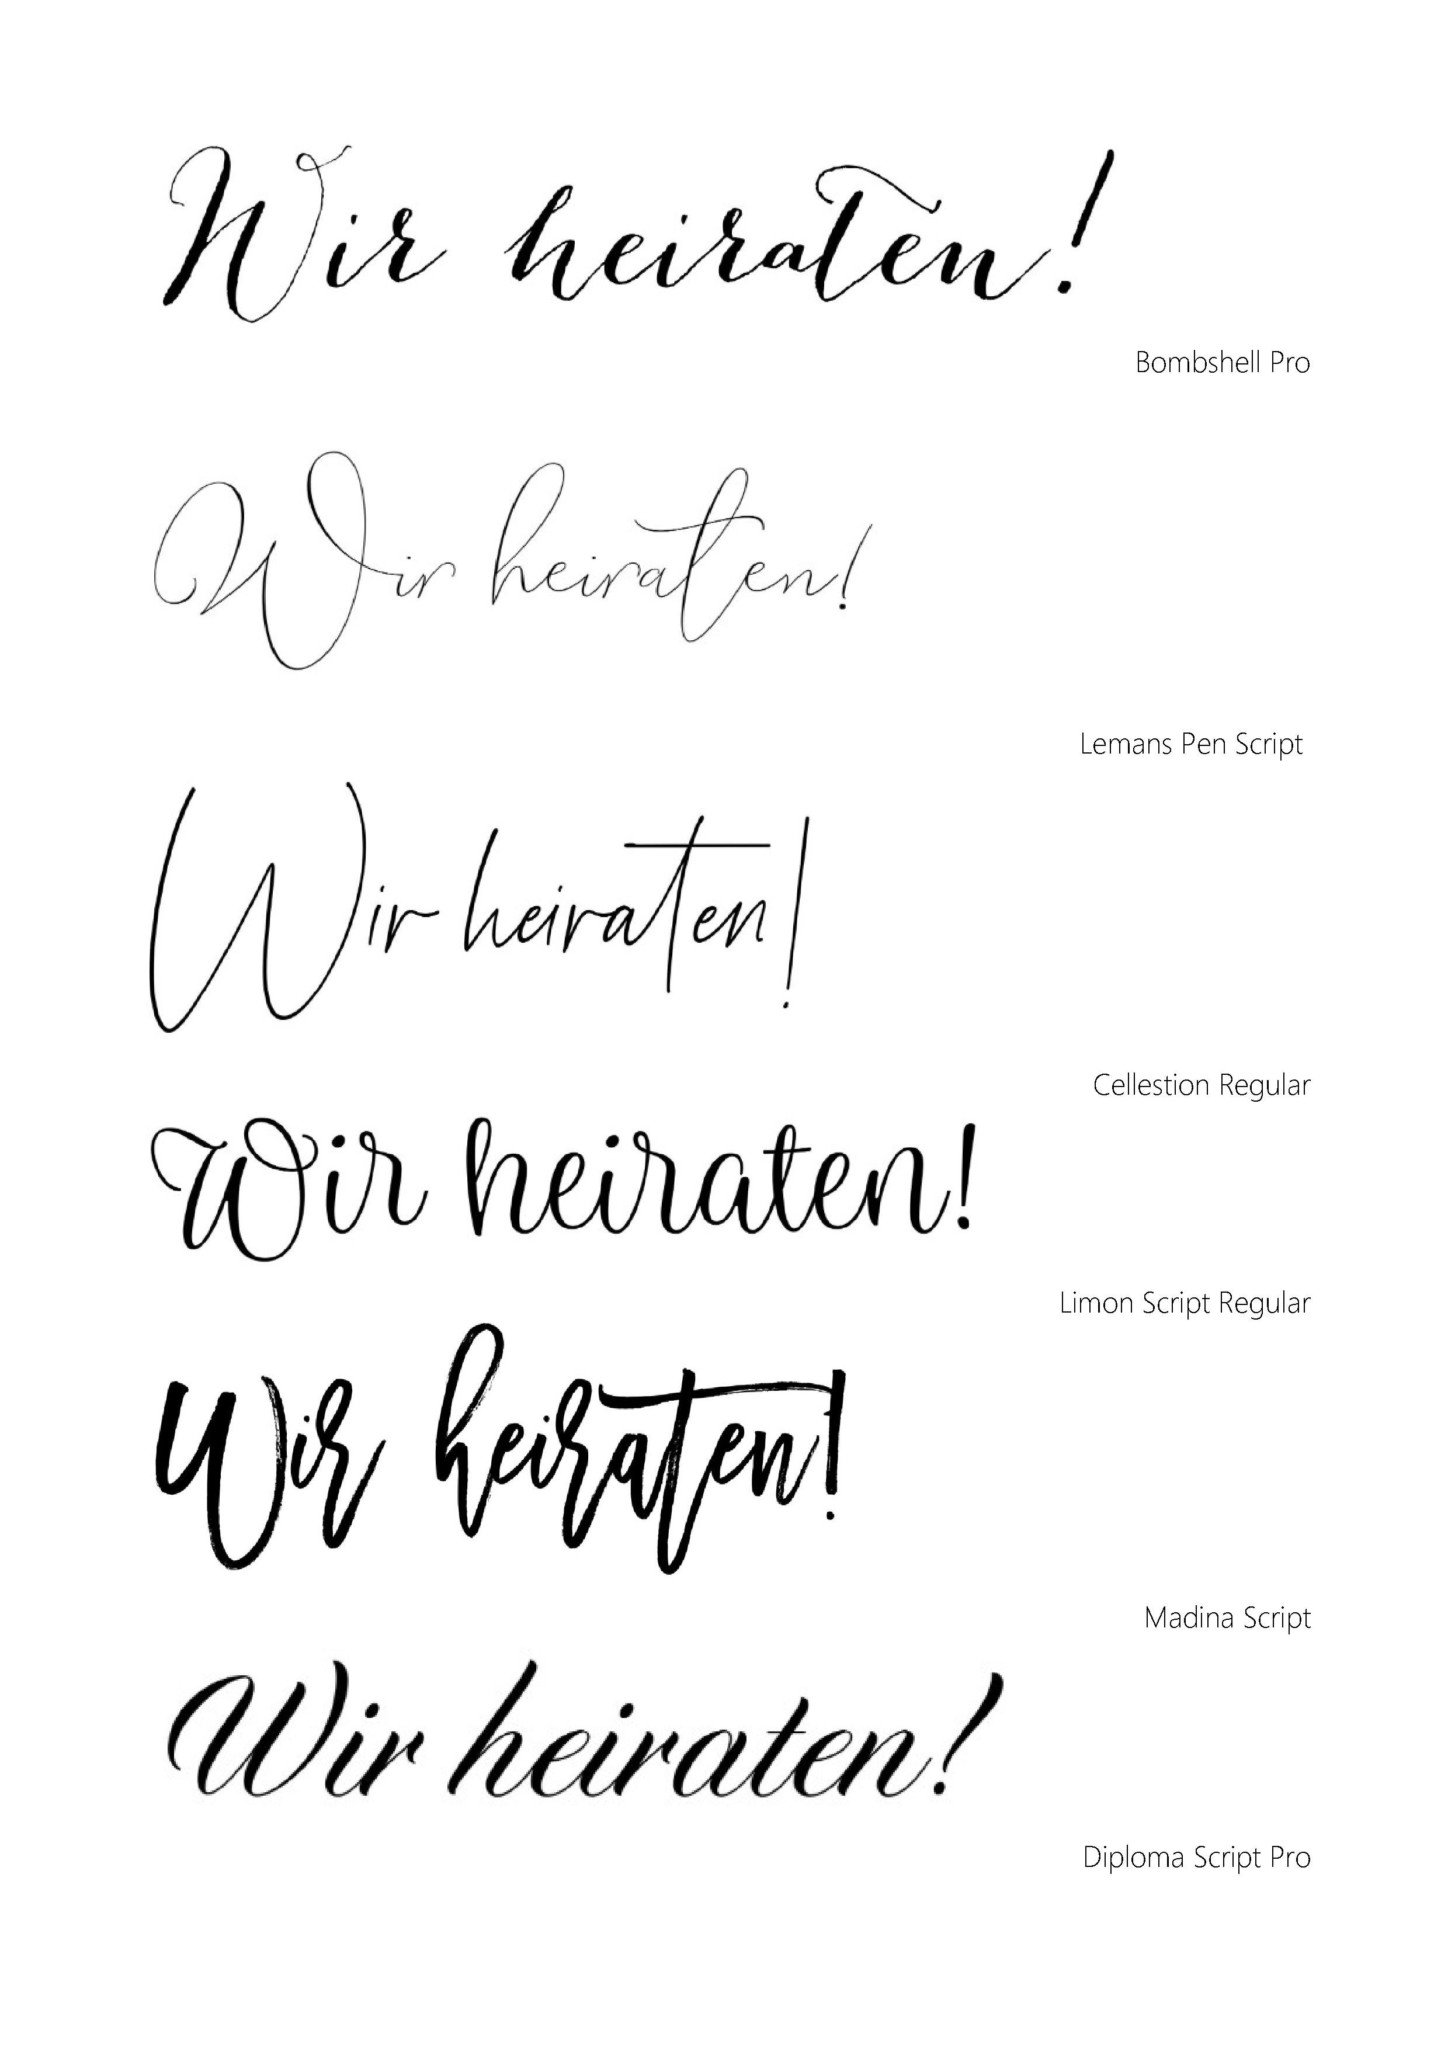 Wir heiraten!
Bombshell Pro
Wir heiraten!
Lemans Pen Script
Wir heiraten!
Cellestion Regular
Wir heiraten!
Limon Script Regular
Wir heiraten!
Madina Script
Wir heiraten!
Diploma Script Pro